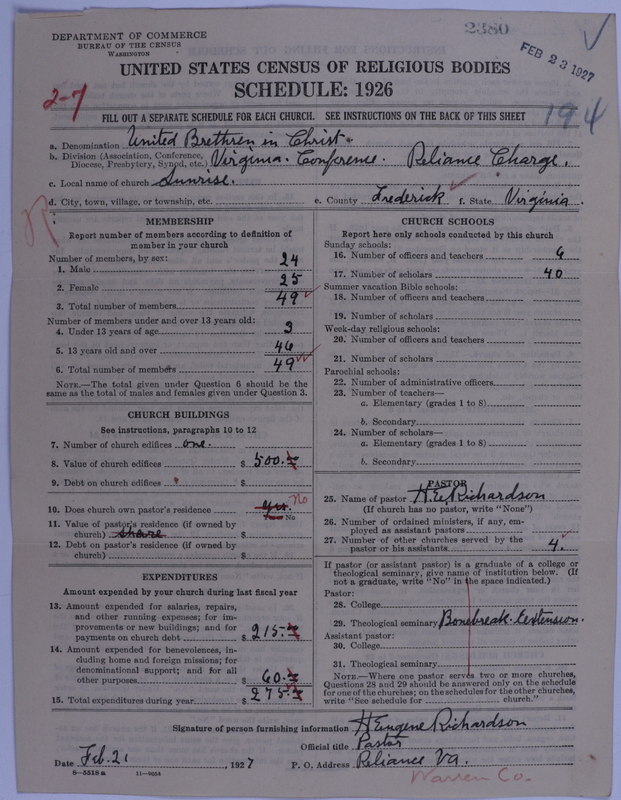 2380
DEPARTMENT OF COMMERCE
BUREAU OF THE CENSUS
WASHINGTON
FEB 23 1927
UNITED STATES CENSUS OF RELIGIOUS BODIES
SCHEDULE: 1926
2-7
194
FILL OUT A SEPARATE SCHEDULE FOR EACH CHURCH. SEE INSTRUCTIONS ON THE BACK OF THIS SHEET
a. Denomination United Brethren in Christ
b. Division (Association, Conference, Diocese, Presbytery, Synod, etc.) Virginia. Conference. Reliance Charge.
c. Local name of church Sunrise.
d. City, town, village, or township, etc. e. County Frederick f. State Virginia.
MEMBERSHIP
Report number of members according to definition of
member in your church
Number of members, by sex:
1. Male 24
2. Female 25
3. Total number of members 49
Number of members under and over 13 years old:
4. Under 13 years of age 3
5. 13 years old and over 46
6. Total number of members 49
NOTE.—The total given under Question 6 should be the
same as the total of males and females given under Question 3.
CHURCH BUILDINGS
See instructions, paragraphs 10 to 12
7. Number of church edifices one.
8. Value of church edifices $ 500.
9. Debt on church edifices $
10. Does church own pastor's residence yes. No
Yes or No
11. Value of pastor's residence (if owned by
church) share $
12. Debt on pastor's residence (if owned by
church) $
EXPENDITURES
Amount expended by your church during last fiscal year
13. Amount expended for salaries, repairs,
and other running expenses; for im-
provements or new buildings; and for
payments on church debt $ 215.
14. Amount expended for benevolences, in-
cluding home and foreign missions; for
denominational support; and for all
other purposes $ 60.
15. Total expenditures during year $ 275.
CHURCH SCHOOLS
Report here only schools conducted by this church
Sunday schools:
16. Number of officers and teachers 6
17. Number of scholars 40
Summer vacation Bible schools:
18. Number of officers and teachers
19. Number of scholars
Week-day religious schools:
20. Number of officers and teachers
21. Number of scholars
Parochial schools:
22. Number of administrative officers
23. Number of teachers—
a. Elementary (grades 1 to 8)
b. Secondary
24. Number of scholars—
a. Elementary (grades 1 to 8)
b. Secondary
PASTOR
25. Name of pastor H.E. Richardson
(If church has no pastor, write "None")
26. Number of ordained ministers, if any, em-
ployed as assistant pastors
27. Number of other churches served by the
pastor or his assistants 4.
If pastor (or assistant pastor) is a graduate of a college or
theological seminary, give name of institution below. (If
not a graduate, write "No" in the space indicated.)
Pastor:
28. College
29. Theological seminary Bonebreak. Extension.
Assistant pastor:
30. College
31. Theological seminary
NOTE.—Where one pastor serves two or more churches,
Questions 28 and 29 should be answered only on the schedule
for one of the churches; on the schedules for the other churches,
write "See schedule for church."
Signature of person furnishing information H Eugene Richardson
Official title Pastor
Date Feb. 21, 1927 P. O. Address Reliance Va.
8—5518 a 11—9054
Warren Co.